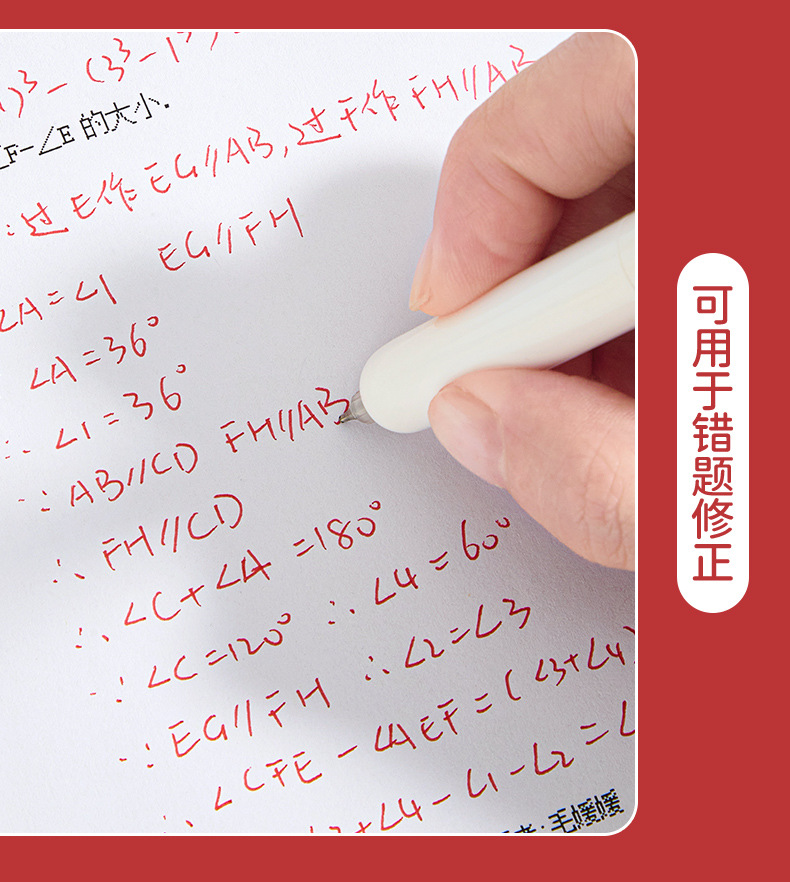 )³-(3³-1³)
F-∠E的大小.
:过E作EG//AB,过F作FH//AB
∠A=∠1 EG//FH
∠A=36°
∴∠1=36°
∵AB//CD FH//AB
∴FH//CD
∴∠C+∠A=180°
∵∠C=120° ∴∠4=60°
∵EG//FH ∴∠2=∠3
∴∠CFE-∠AEF=(∠3+∠4)
+∠4-∠1-∠2=∠
:毛媛媛
可用于错题修正